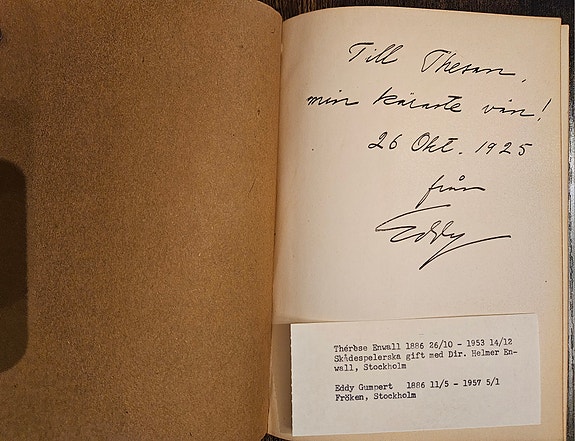 Till Thesan,
min käraste vän!
26 Okt. 1925
från
Eddy
Thérèse Enwall 1886 26/10 - 1953 14/12
Skådespelerska gift med Dir. Helmer En-
wall, Stockholm
Eddy Gumpert 1886 11/5 - 1957 5/1
Fröken, Stockholm